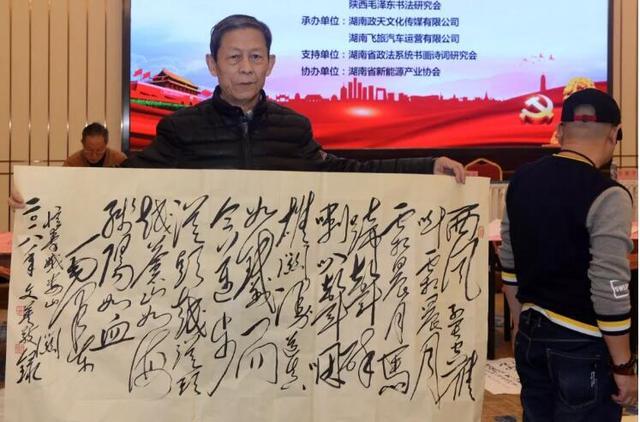 陕西毛泽东书法研究会
承办单位：湖南政天文化传媒有限公司
湖南飞旅汽车运营有限公司
支持单位：湖南省政法系统书画诗词研究会
协办单位：湖南省新能源产业协会
西风
叫霜晨月
霜晨月馬
蹄聲碎
喇叭聲咽
雄關漫道真
如鐵而
今邁步
從頭越從頭
越蒼山如海
殘陽如血
毛澤東
憶秦娥婁山關
二〇一八年文